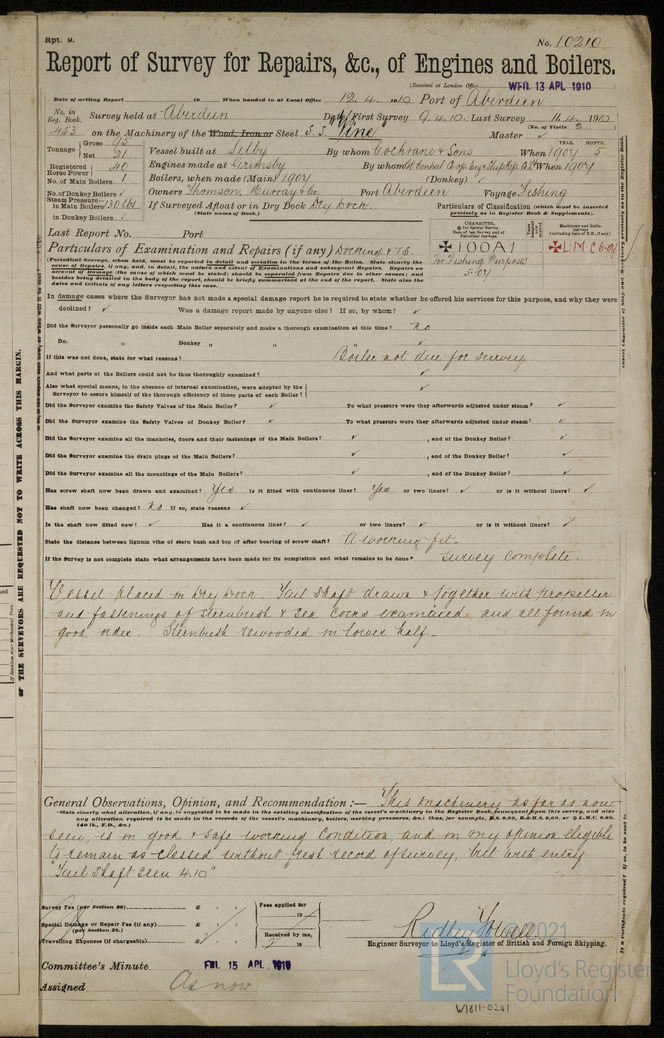 Rpt. 9.
No. 10210
Report of Survey for Repairs, &c., of Engines and Boilers.
(Received at London Office WED. 13 APL 1910
Date of writing Report 19 When handed in at Local Office 12.4.1910 Port of Aberdeen
No. in Reg. Book. Survey held at Aberdeen Date, First Survey 9.4.10 Last Survey 11.4.1910
(No. of Visits 2)
453 on the Machinery of the Wood, Iron or Steel S.S. Vine Master ✓
Tonnage Gross Net 21 Vessel built at Selby By whom Cochrane & Sons When 1907 5
YEAR. MONTH.
Registered Horse Power 40 Engines made at Grimsby By whom When 1907
No. of Main Boilers 1 Boilers, when made (Main) 1907 (Donkey) ✓
No. of Donkey Boilers ✓ Owners Thomson, Murray & Co Port Aberdeen Voyage Fishing
Steam Pressure in Main Boilers 130 lbs If Surveyed Afloat or in Dry Dock Dry Dock.
in Donkey Boilers ✓ (State name of Dock.)
Particulars of Classification (which must be inserted precisely as in Register Book & Supplements).
Last Report No. Port
Particulars of Examination and Repairs (if any) Docking & T.S.
100A1
For Fishing Purposes
5.07
LMC 6.07
(Periodical Surveys, when held, must be reported in detail and seriatim in the terms of the Rules. State clearly the cause of Repairs, if any, and, in detail, the nature and extent of Examinations and subsequent Repairs. Repairs on account of Damage (the cause of which must be stated) should be separated from Repairs due to other causes; and besides being detailed in the body of the report, should be briefly summarised at the end of the report. State also the dates and initials of any letters respecting this case.)
In damage cases where the Surveyor has not made a special damage report he is required to state whether he offered his services for this purpose, and why they were
declined? ✓ Was a damage report made by anyone else? If so, by whom? ✓
Did the Surveyor personally go inside each Main Boiler separately and make a thorough examination at this time? No
Do. " Donkey " " ✓
If this was not done, state for what reasons? Boiler not due for survey
And what parts of the Boilers could not be thus thoroughly examined? ✓
Also what special means, in the absence of internal examination, were adopted by the
Surveyor to assure himself of the thorough efficiency of those parts of each Boiler? ✓
Did the Surveyor examine the Safety Valves of the Main Boiler? ✓ To what pressure were they afterwards adjusted under steam? ✓
Did the Surveyor examine the Safety Valves of Donkey Boiler? ✓ To what pressure were they afterwards adjusted under steam? ✓
Did the Surveyor examine all the manholes, doors and their fastenings of the Main Boilers? ✓, and of the Donkey Boiler? ✓
Did the Surveyor examine the drain plugs of the Main Boilers? ✓, and of the Donkey Boiler? ✓
Did the Surveyor examine all the mountings of the Main Boilers? ✓, and of the Donkey Boiler? ✓
Has screw shaft now been drawn and examined? Yes Is it fitted with continuous liner? Yes or two liners? ✓ or is it without liners? ✓
Has shaft now been changed? No If so, state reasons ✓
Is the shaft now fitted new? ✓ Has it a continuous liner? ✓ or two liners? ✓ or is it without liners? ✓
State the distance between lignum vitæ of stern bush and top of after bearing of screw shaft? A working fit.
If the Survey is not complete state what arrangements have been made for its completion and what remains to be done? Survey complete.
Vessel placed in Dry Dock. Tail Shaft drawn & together with propeller
and fastenings of sternbush & sea cocks examined, and all found in
good order. Sternbush rewooded in lower half.
General Observations, Opinion, and Recommendation :— This Machinery as far as now
seen, is in good & safe working condition, and in my opinion eligible
to remain as classed without fresh record of survey, but with entry
"Tail Shaft seen 4.10"
Survey Fee (per Section 28) £
Special Damage or Repair Fee (if any) £
(per Section 28.)
Travelling Expenses (if chargeable) £
Fees applied for
19
Received by me,
19
Engineer Surveyor to Lloyd's Register of British and Foreign Shipping.
Committee's Minute FRI. 15 APL 1910
Assigned As now
OF THE SURVEYORS ARE REQUESTED NOT TO WRITE ACROSS THIS MARGIN.
2021
LR
Lloyd's Register
Foundation
W1611-0241